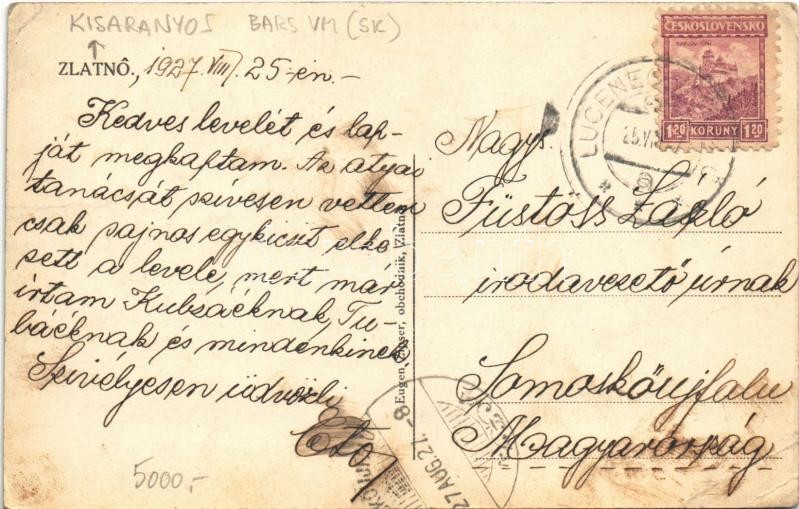 KISARANYOS BARS VM (SK)
ZLATNÔ, 1927. VIII. 25-én.-
Kedves levelét és lap-
ját megkaptam. Az atyai
tanácsát szívesen vettem
csak sajnos egy kicsit elké
sett a levele, mert már
írtam Kubsáéknak, Tu-
báéknak és mindenkinek
Szívélyesen üdvözli
5000,-
Eugen obchodník, Zlatnô
ČESKOSLOVENSKO
1·20 KORUNY 1·20
LUCENEC
25.VI
Nagys.
Füstöss László
irodavezető úrnak
Somoskőujfalu
Magyarország
27 AUG. 27. -8